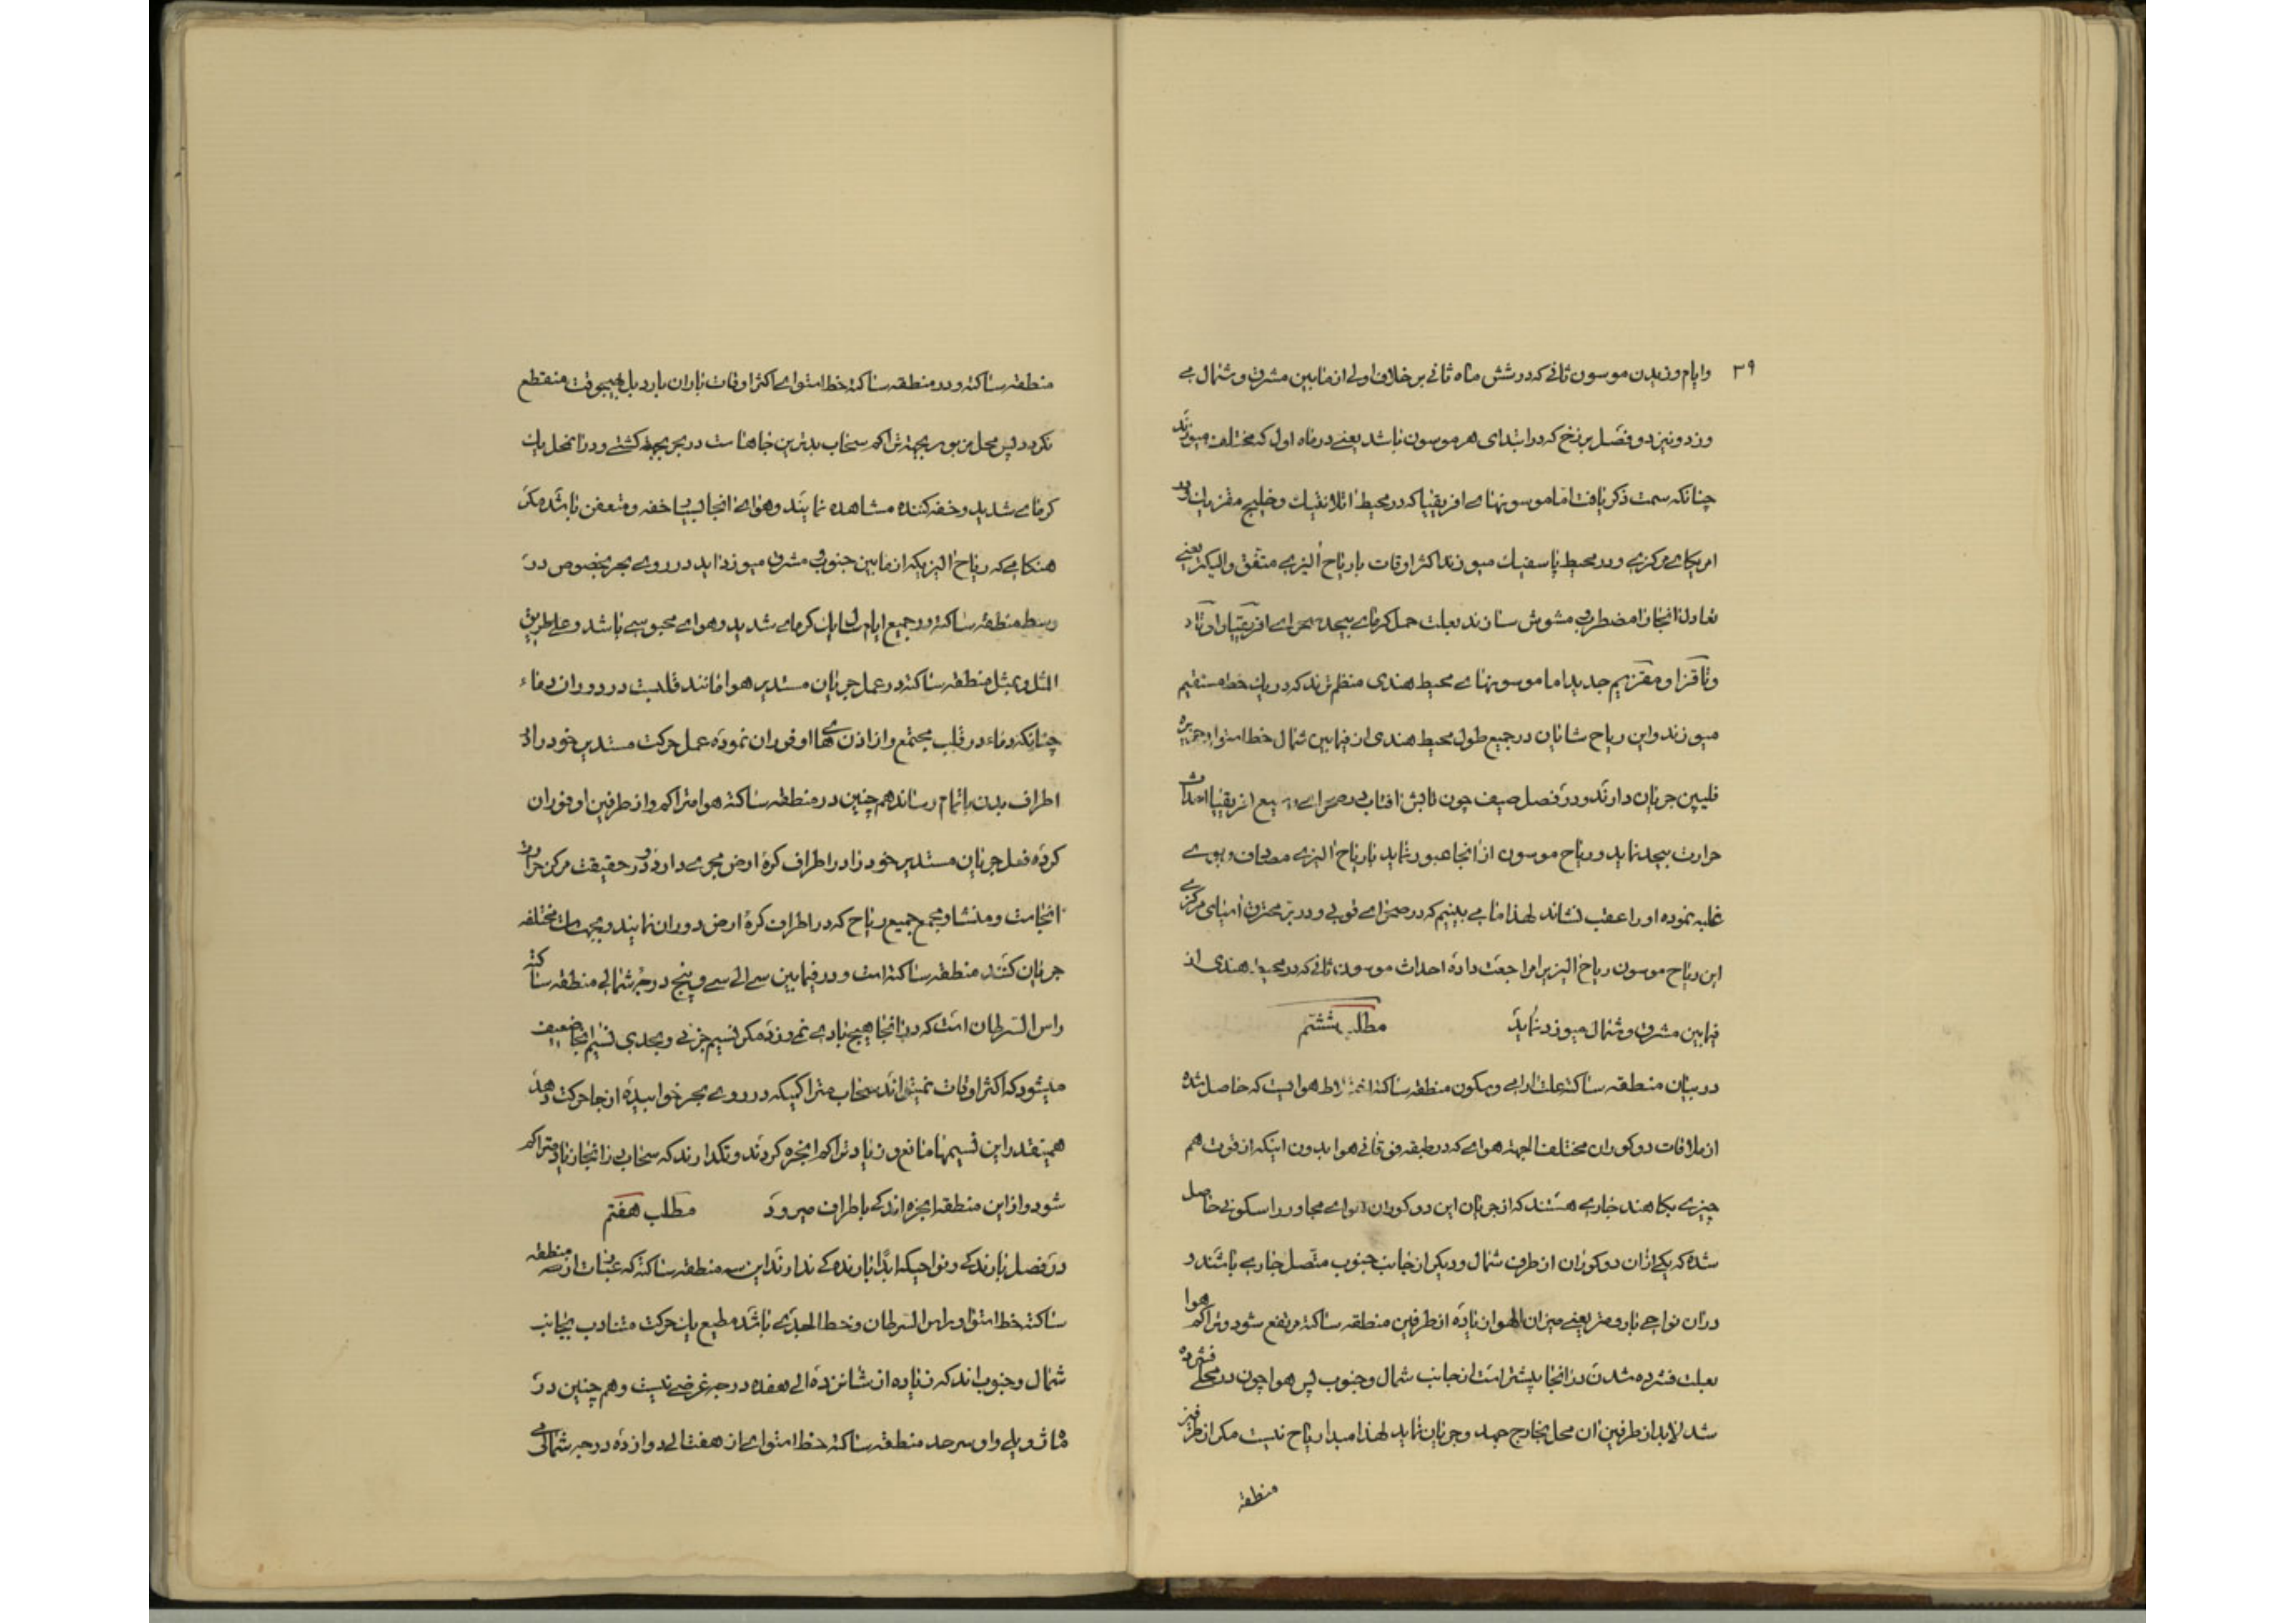 ۳۹
وایام وزیدن موسون ثانی که در شش ماه ثانی بر خلاف اولی از مابین مشرق و شمال می
وزد و نیز دو فصل برزخ که در ابتدای هر موسون باشد یعنی در ماه اول که مختلف میوزند
چنانکه سمت ذکر یافت اما موسونهای افریقیا که در محیط اتلانتیک و خلیج مقزیک و در
امریکای مرکزی و در محیط پاسفیک میوزند اکثر اوقات با ریاح الیزی متفق والیکن یعنی
تعادل انجا را مضطرب و مشوش سازند بعلت حمل کرمای بیحد صحرای افریقیا
و تاقزا و مقزیم جدید اما موسونهای محیط هندی منظم ترند که در یک خط مستقیم
میوزند و این ریاح شایان در جمیع طول محیط هندی از فیمابین شمال خط استوا و جزیره
فلیپین جریان دارند و در فصل صیف چون تابش افتاب در صحرای وسیع افریقیا احداث
حرارت بیحد نماید و ریاح موسون از انجا عبور نماید با ریاح الیزی مصادف و بوی
غلبه نموده او را عقب نشاند لهذا ما می بینیم که در صحرای قوبی و در بر محترق اسیای مرکزی
این ریاح موسون ریاح الیزیرا مراجعت داده احداث موسون ثانی که در محیط هندی از
فیمابین مشرق و شمال میوزد نماید مطلب ششم
در بیان منطقه ساکنه علت ارامی و سکون منطقه ساکنه هوائیست که حاصل شده
از ملاقات دو کوران مختلف الجهة هوای که در طبقه فوقانی هوا بدون اینکه از قوت هم
چیزی بکاهند جاری هستند که از جریان این دو کوران هوای مجاور را سکونی حاصل
شده که یکی از ان دو کوران از طرف شمال و دیگر از جانب جنوب متصل جاری باشند و
در ان نواحی بارومتر یعنی میزان الهوا زیاده از طرفین منطقه ساکنه مرتفع شود و تراکم هوا
بعلت فشرده شدن در انجا بیشتر است از جانب شمال و جنوب پس هوا چون در محلی فشرده
شد لابد از طرفین ان محل بخارج جهد و جریان نماید لهذا مبداء ریاح نیست مکر از طرفین
منطقه
منطقه ساکنه و در منطقه ساکنه خط استوای اکثر اوقات باران بارد بل هیچوقت منقطع
نکردد پس محل مزبور بجهة تراکم سحاب بدترین جاهاست در بحر بجهة کشتی و در انمحل یک
کرمای شدید و خفه کننده مشاهده نمایند و هوای انجا بسیار خفه و متعفن باشد مکر
هنکامی که ریاح الیزیکه از مابین جنوب و مشرق میوزد اید در روی بحر بخصوص در
وسط منطقه ساکنه در جمیع ایام سال یک کرمای شدید و هوای محبوسی باشد و علی طریق
المثل و بمثل منطقه ساکنه در عمل جریان مستدیر هوا مانند قلبست در دوران دماء
چنانکه دماء در قلب مجتمع و از اذن های او فوران نموده عمل حرکت مستدیر خود را در
اطراف بدن باتمام رساند همچنین در منطقه ساکنه هوا متراکم و از طرفین او فوران
کرده فعل جریان مستدیر خود را در اطراف کره ارض مجری دارد و در حقیقت مرکز حرارت
انجاست و منشا و مجمع جمیع ریاح که در اطراف کره ارض دوران نمایند و بجهات مختلفه
جریان کنند منطقه ساکنه است و در فیمابین سی الی سی و پنج درجه شمالی منطقه ساکنه
راس السرطان است که در انجا هیچ بادی نمی وزد مکر نسیم جزئی و بحدی نسیم انجا ضعیف
میشود که اکثر اوقات نمیتواند سحاب متراکمیکه در روی بحر خوابیده از جا حرکت دهد
همینقدر این نسیمها مانع و زیاد تراکم ابخره کردند و نکذارند که سحاب در انجا زیاد متراکم
شود و از این منطقه ابخره اندکی باطراف میرود مطلب هفتم
در فصل بارندکی و نواحیکه ابدا بارندکی ندارند این سه منطقه ساکنه که عبارت از منطقه
ساکنه خط استوا و راس السرطان و خط الجدی باشد مطیع یک حرکت متناوب بجانب
شمال و جنوب اند که زیاده از شانزده الی هفده درجه عرضی نیست و هم چنین در
ماه ژویلی و اوت سرحد منطقه ساکنه خط استوای از هفت الی دوازده درجه شمالی